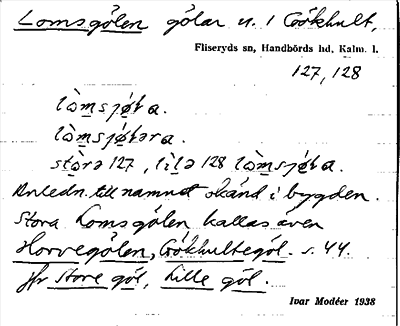 Lomsgölen gölar n. i Gökhult,
Fliseryds sn, Handbörds hd, Kalm. l.
127, 128
lò̀msjø̂ta.
lò̀msjø̂təra.
stòrə 127, lìlə 128 lò̀msjø̂ta.
Anledn. till namnet okänd i bygden.
Stora Lomsgölen kallas även
Horvegölen, Gökhultegöl. s. 44.
Jfr Store göl, Lille göl.
Ivar Modéer 1938